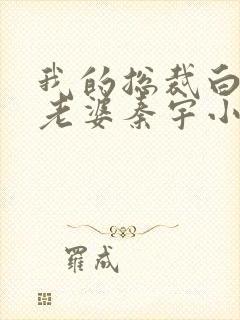 我的总裁白
老婆秦宇小
罗成